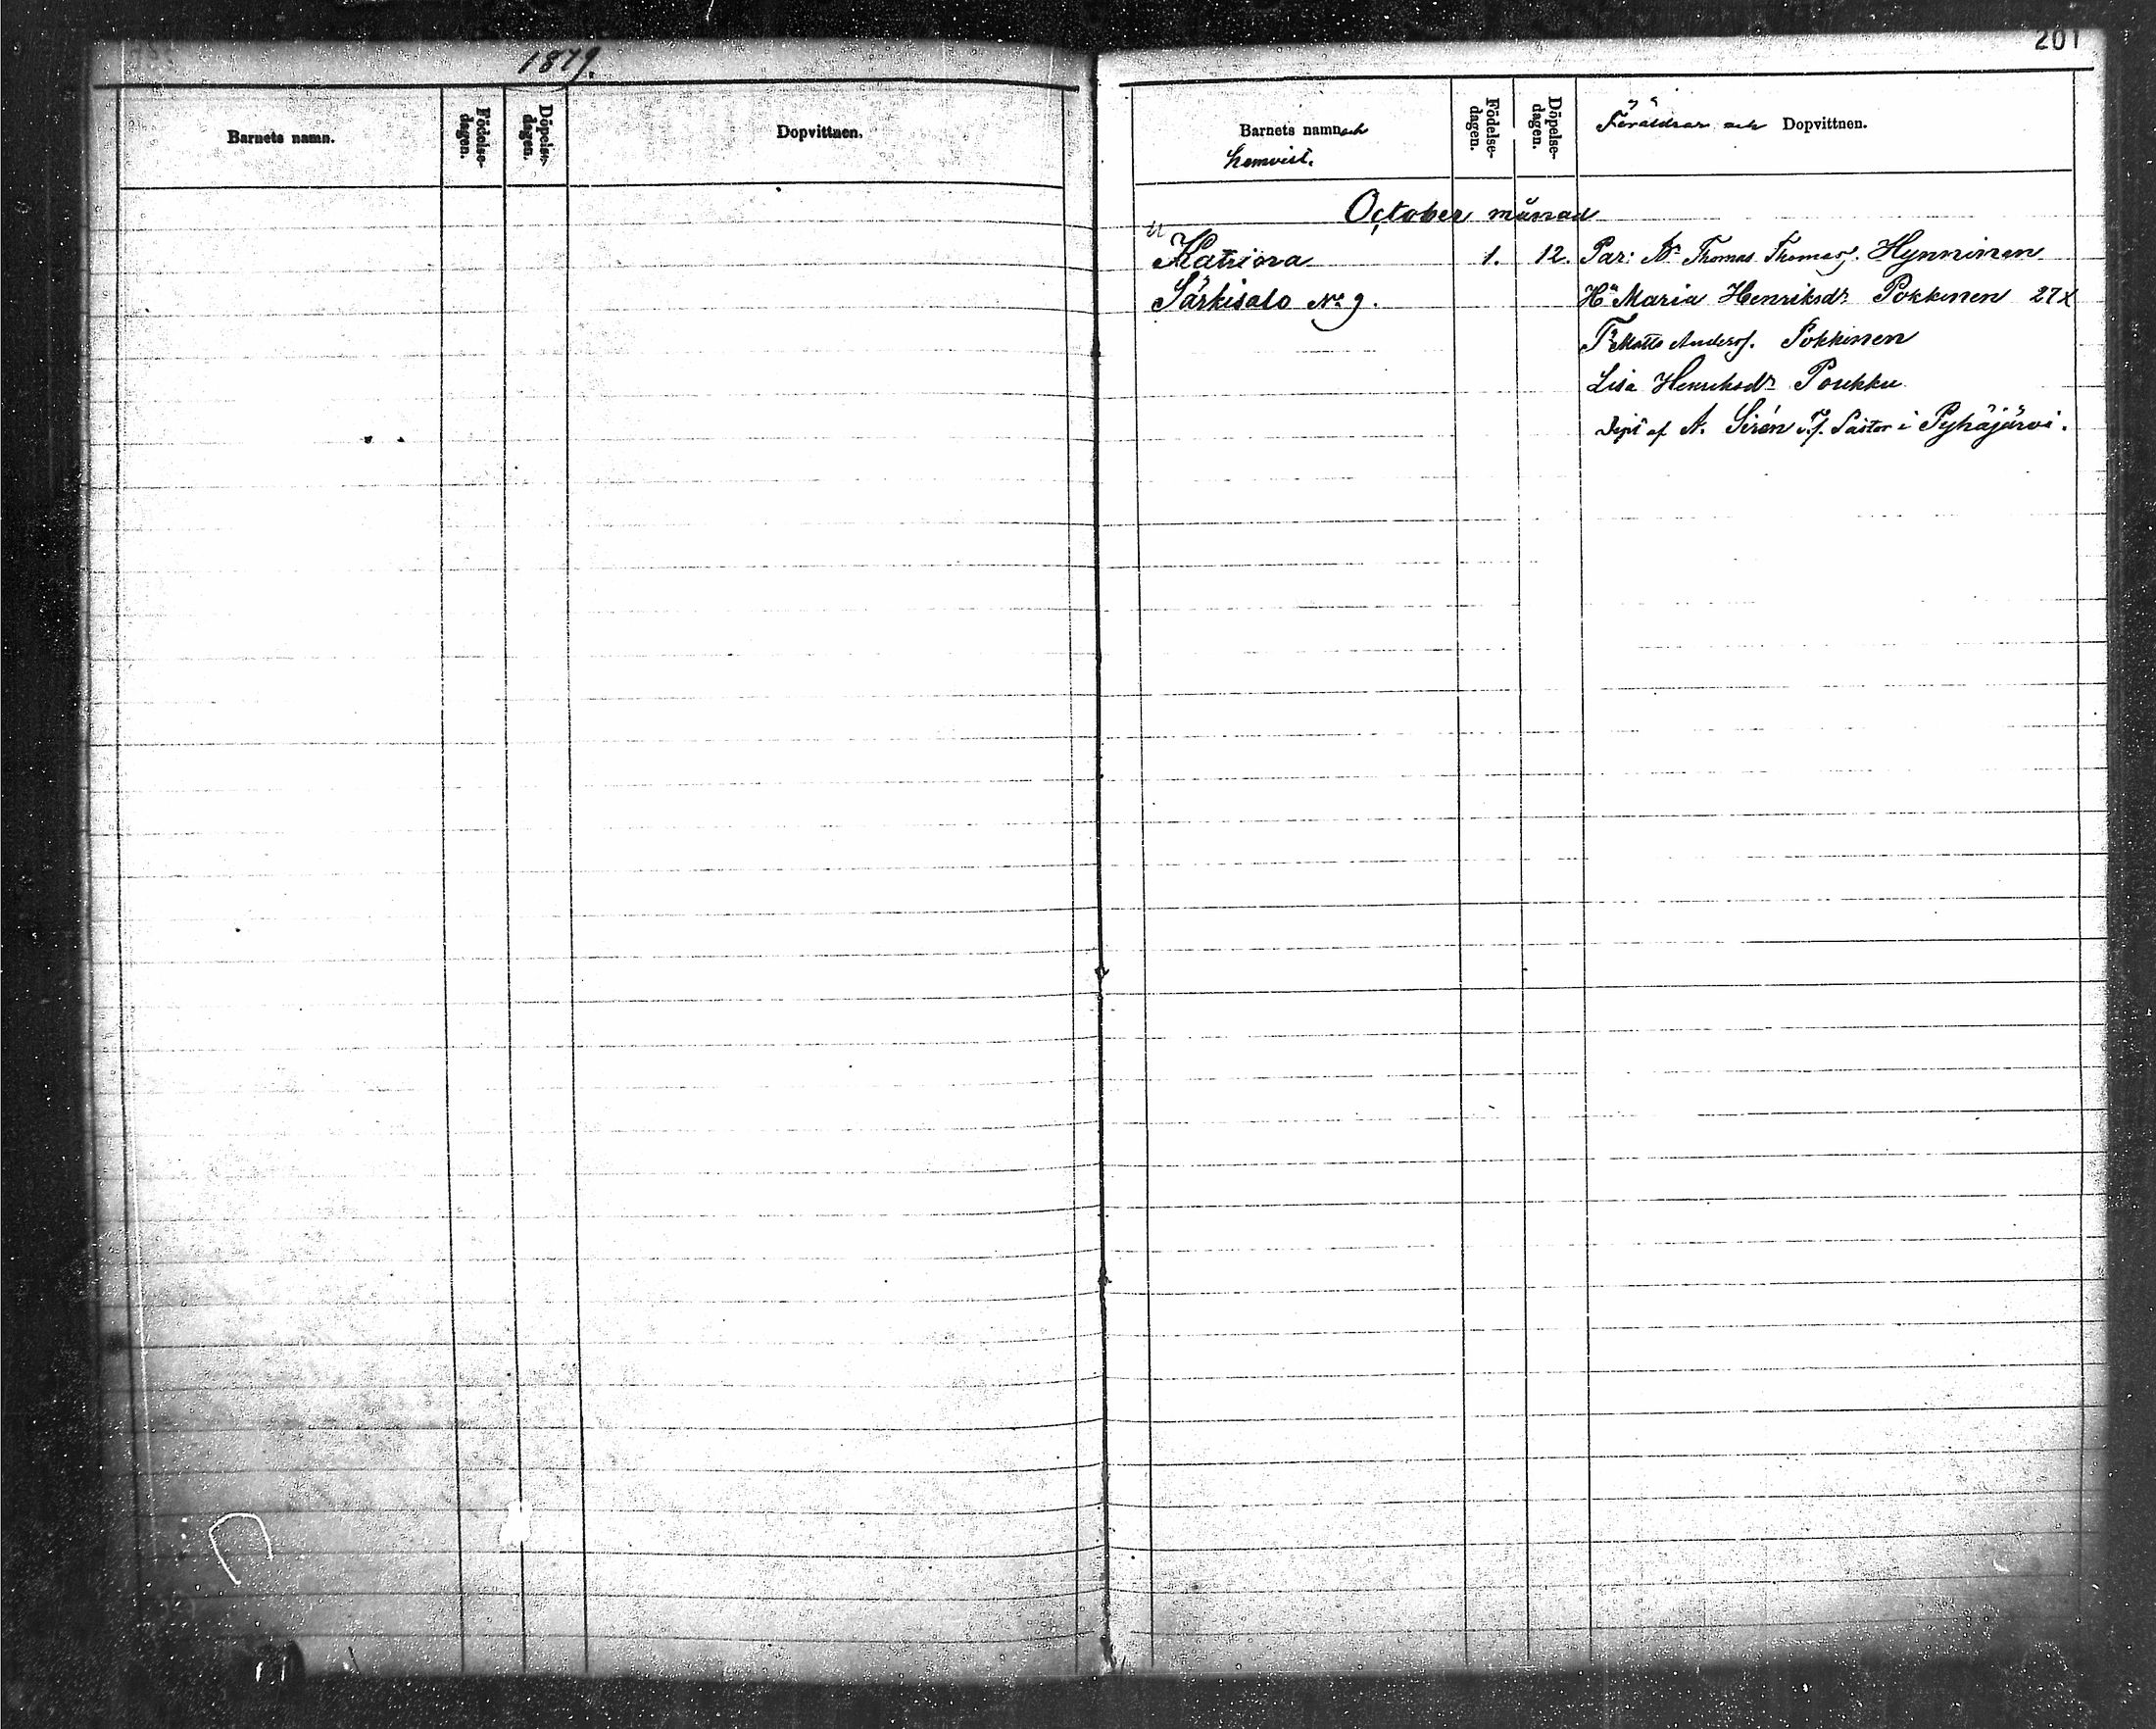 1879.
Barnets namn.
Födelse-
dagen.
Döpelse-
dagen.
Dopvittnen.
201
Barnets namn och
hemvist.
Födelse-
dagen.
Döpelse-
dagen.
Föräldrar och Dopvittnen.
October månad
Katriona 1. 12. Par: Thomas Thomass. Hynninen
Särkisalo No 9. Hu Maria Henriksdr Pokkinen 27
Matts Anderss. Pokkinen
Lisa Henriksdr Poukku
Döpt af A. Sirén T.f. Pastor i Pyhäjärvi.